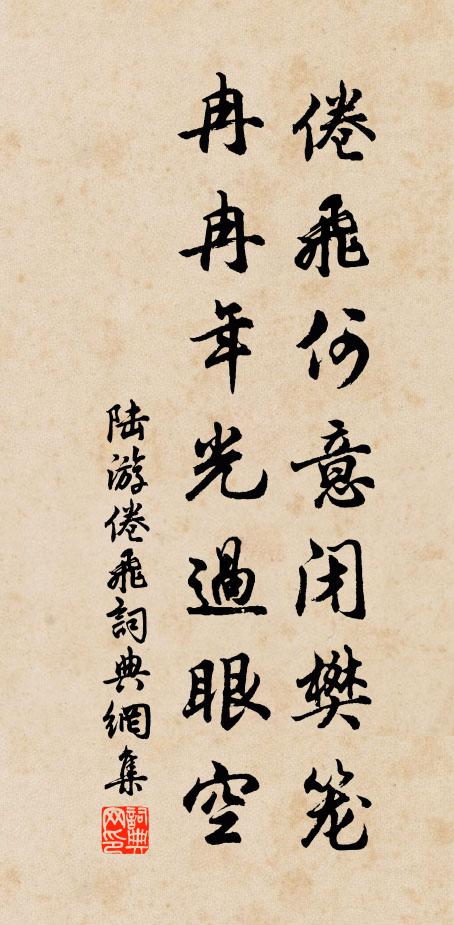 倦飛何意閉樊笼
冉冉年光過眼空
陆游倦飛詞典網集
詞典網印